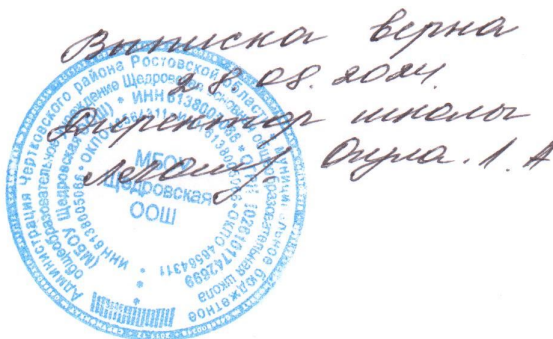 Выписка верна
28.08.2024
Директор школы
Администрация Чертковского района Ростовской области
муниципальное бюджетное
общеобразовательное учреждение Щедровская основная общеобразовательная школа
(МБОУ Щедровская ООШ)
ОКПО 46564311
МБОУ
Щедровская
ООШ